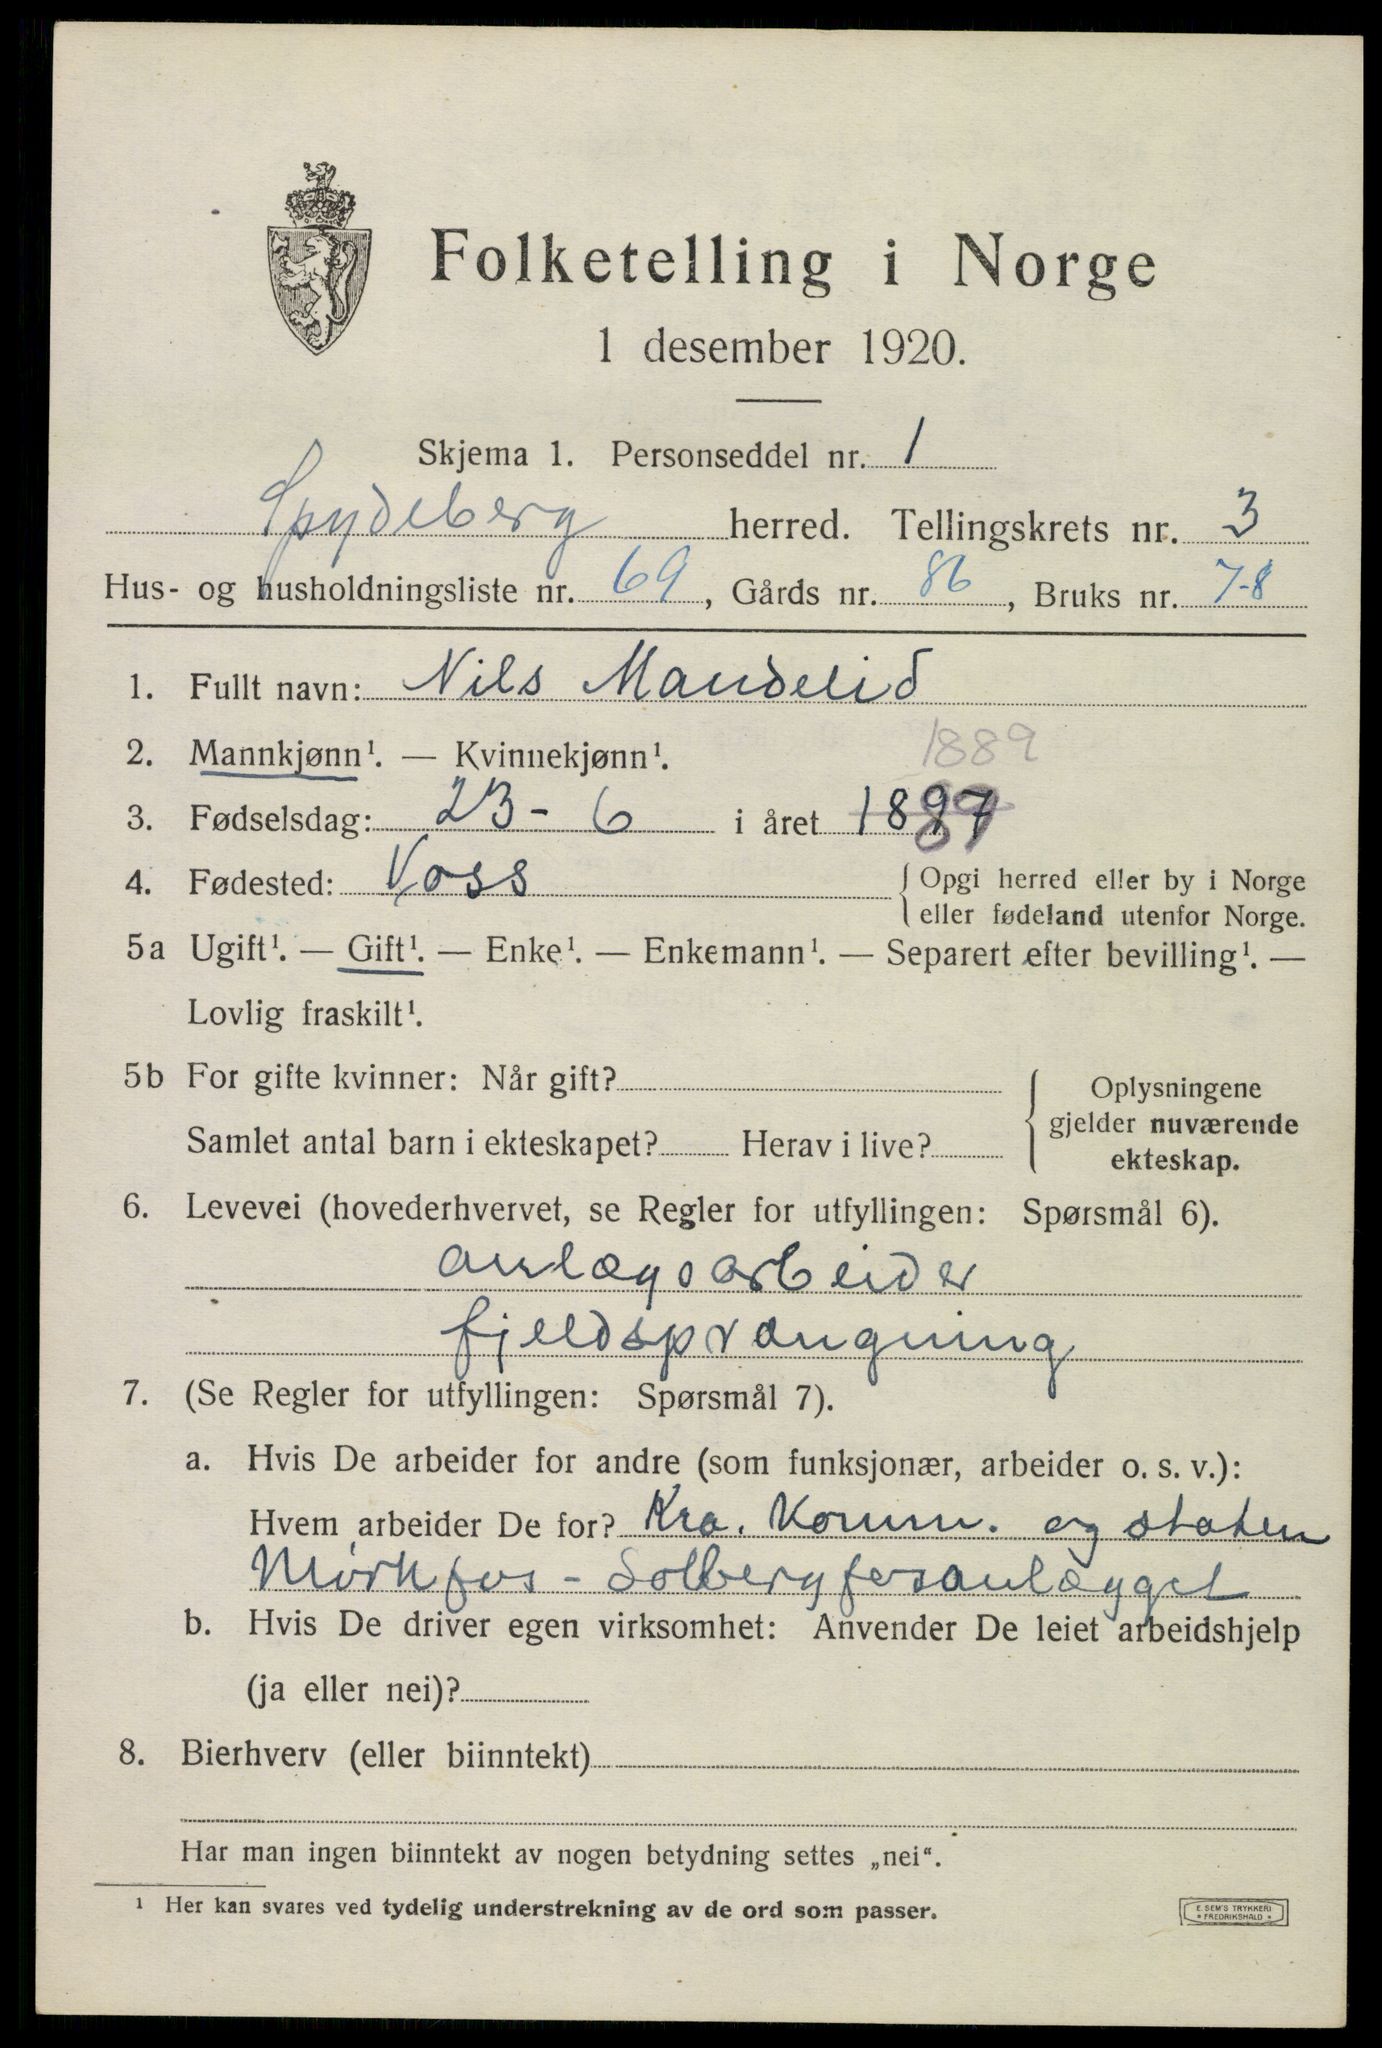 Folketelling i Norge
1 desember 1920.
Skjema 1. Personseddel nr. 1
Spydeberg herred. Tellingskrets nr. 3
Hus- og husholdningsliste nr. 69, Gårds nr. 86, Bruks nr. 7-8
1. Fullt navn: Nils Mandelid
2. Mannkjønn¹. — Kvinnekjønn¹.
1889
3. Fødselsdag: 23 - 6 i året 1897
4. Fødested: Voss { Opgi herred eller by i Norge
eller fødeland utenfor Norge.
5a Ugift¹. — Gift¹. — Enke¹. — Enkemann¹. — Separert efter bevilling¹. —
Lovlig fraskilt¹.
5b For gifte kvinner: Når gift?
Samlet antal barn i ekteskapet? Herav i live?
{ Oplysningene
gjelder nuværende
ekteskap.
6. Levevei (hovederhvervet, se Regler for utfyllingen: Spørsmål 6).
anlægsarbeider
fjeldsprængning
7. (Se Regler for utfyllingen: Spørsmål 7).
a. Hvis De arbeider for andre (som funksjonær, arbeider o. s. v.):
Hvem arbeider De for? Kra. Komm. og staten
Mørkfos - Solbergfosanlægget
b. Hvis De driver egen virksomhet: Anvender De leiet arbeidshjelp
(ja eller nei)?
8. Bierhverv (eller biinntekt)
Har man ingen biinntekt av nogen betydning settes „nei“.
¹ Her kan svares ved tydelig understrekning av de ord som passer.
E. SEM'S TRYKKERI
* FREDRIKSHALD *